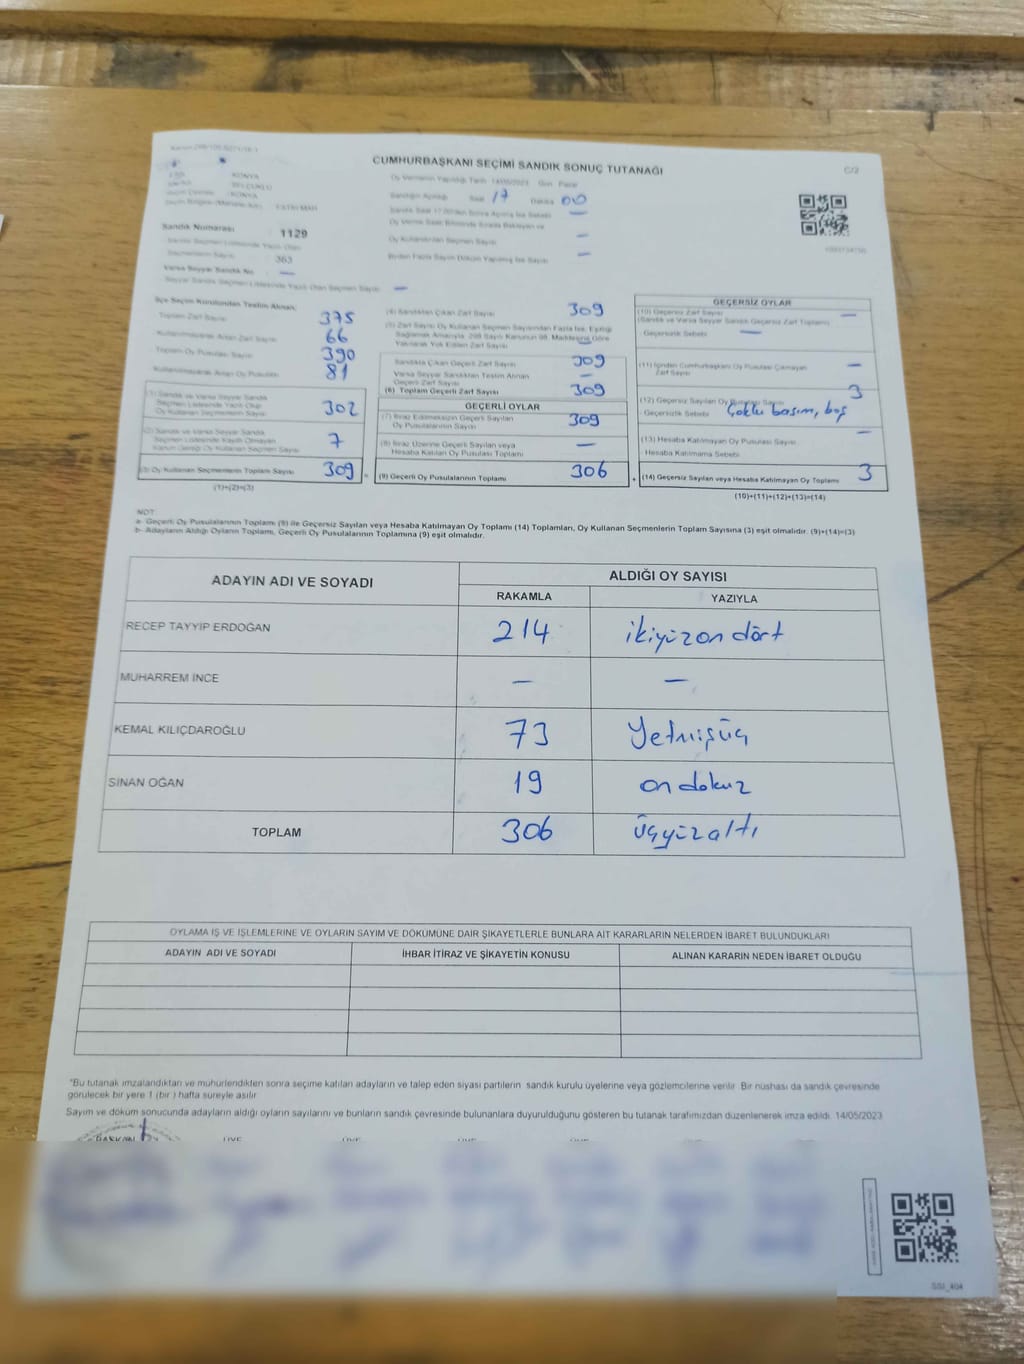 CUMHURBAŞKANI SEÇİMİ SANDIK SONUÇ TUTANAĞI
C/2
KONYA
SELÇUKLU
KONYA
Oy Vermenin Yapıldığı Tarih 14/05/2023 Gün Pazar
Sandığın Açıldığı Saat 17 Dakika 00
Sandık Numarası 1129
363
Oy Kullandırılan Seçmen Sayısı —
Birden Fazla Sayım Döküm Yapılmış İse Sayısı —
Varsa Seyyar Sandık No —
Seyyar Sandık Seçmen Listesinde Yazılı Olan Seçmen Sayısı —
İlçe Seçim Kurulundan Teslim Alınan;
Toplam Zarf Sayısı 375
Kullanılmayarak Artan Zarf Sayısı 66
Toplam Oy Pusulası Sayısı 390
Kullanılmayarak Artan Oy Pusulası 81
(1) Sandık ve Varsa Seyyar Sandık
Seçmen Listesinde Yazılı Olup
Oy Kullanan Seçmenlerin Sayısı 302
(2) Sandık ve Varsa Seyyar Sandık
Seçmen Listesinde Kayıtlı Olmayan
Kanun Gereği Oy Kullanan Seçmen Sayısı 7
(3) Oy Kullanan Seçmenlerin Toplam Sayısı 309
(1)+(2)=(3)
(4) Sandıktan Çıkan Zarf Sayısı 309
(5) Zarf Sayısı Oy Kullanan Seçmen Sayısından Fazla İse, Eşitliği
Sağlamak Amacıyla, 298 Sayılı Kanunun 98. Maddesine Göre
Yakılarak Yok Edilen Zarf Sayısı —
Sandıkta Çıkan Geçerli Zarf Sayısı 309
Varsa Seyyar Sandıktan Teslim Alınan
Geçerli Zarf Sayısı —
(6) Toplam Geçerli Zarf Sayısı 309
GEÇERLİ OYLAR
(7) İtiraz Edilmeksizin Geçerli Sayılan
Oy Pusulalarının Sayısı 309
(8) İtiraz Üzerine Geçerli Sayılan veya
Hesaba Katılan Oy Pusulası Toplamı —
(9) Geçerli Oy Pusulalarının Toplamı 306
GEÇERSİZ OYLAR
(10) Geçersiz Zarf Sayısı
(Sandık ve Varsa Seyyar Sandık Geçersiz Zarf Toplamı) —
Geçersizlik Sebebi —
(11) İçinden Cumhurbaşkanı Oy Pusulası Çıkmayan
Zarf Sayısı —
(12) Geçersiz Sayılan Oy Pusulası Sayısı 3
Geçersizlik Sebebi Çoklu basım, boş
(13) Hesaba Katılmayan Oy Pusulası Sayısı —
Hesaba Katılmama Sebebi
(14) Geçersiz Sayılan veya Hesaba Katılmayan Oy Toplamı 3
(10)+(11)+(12)+(13)=(14)
NOT:
a- Geçerli Oy Pusulalarının Toplamı (9) ile Geçersiz Sayılan veya Hesaba Katılmayan Oy Toplamı (14) Toplamları, Oy Kullanan Seçmenlerin Toplam Sayısına (3) eşit olmalıdır. (9)+(14)=(3)
b- Adayların Aldığı Oyların Toplamı, Geçerli Oy Pusulalarının Toplamına (9) eşit olmalıdır.
ADAYIN ADI VE SOYADI
ALDIĞI OY SAYISI
RAKAMLA YAZIYLA
RECEP TAYYİP ERDOĞAN 214 ikiyüzon dört
MUHARREM İNCE — —
KEMAL KILIÇDAROĞLU 73 Yetmişüç
SİNAN OĞAN 19 on dokuz
TOPLAM 306 üçyüzaltı
OYLAMA İŞ VE İŞLEMLERİNE VE OYLARIN SAYIM VE DÖKÜMÜNE DAİR ŞİKAYETLERLE BUNLARA AİT KARARLARIN NELERDEN İBARET BULUNDUKLARI
ADAYIN ADI VE SOYADI İHBAR İTİRAZ VE ŞİKAYETİN KONUSU ALINAN KARARIN NEDEN İBARET OLDUĞU
*Bu tutanak imzalandıktan ve mühürlendikten sonra seçime katılan adayların ve talep eden siyasi partilerin sandık kurulu üyelerine veya gözlemcilerine verilir. Bir nüshası da sandık çevresinde
görülecek bir yere 1 (bir) hafta süreyle asılır.
Sayım ve döküm sonucunda adayların aldığı oyların sayılarını ve bunların sandık çevresinde bulunanlara duyurulduğunu gösteren bu tutanak tarafımızdan düzenlenerek imza edildi. 14/05/2023
BAŞKAN